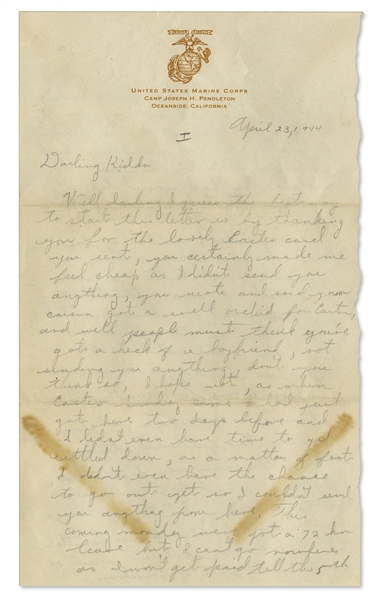 UNITED STATES MARINE CORPS
CAMP JOSEPH H. PENDLETON
OCEANSIDE, CALIFORNIA
April 23, 1944
I
Darling Kiddo
Well darling I guess the best way
to start this letter is by thanking
you for the lovely Easter card
you sent, you certainly made me
feel cheap as I didn't send you
anything, you wrote and said your
cousin got a swell orchid for Easter,
and well people must think you've
got a heck of a boyfriend, not
sending you anything, don't you
think so, I hope not, as when
Easter Sunday came I had just
got here two days before and
I didn't even have time to get
settled down, as a matter of fact
I didn't even have the chance
to go out yet so I couldn't send
you anything from here. This
coming monday we got a 72 hr
leave but I can't go nowhere
as I won't get paid till the 5th